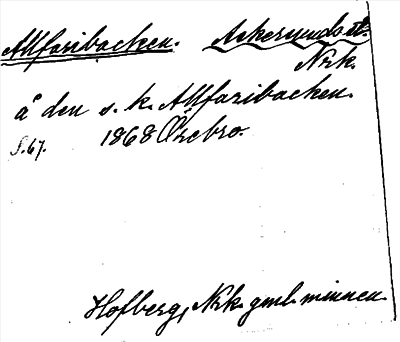 Allfaribacken. Askersunds st.
Nrk.
å den s. k. Allfaribacken.
S. 67. 1868 Örebro.
Hofberg, Nrk. gml. minnen.